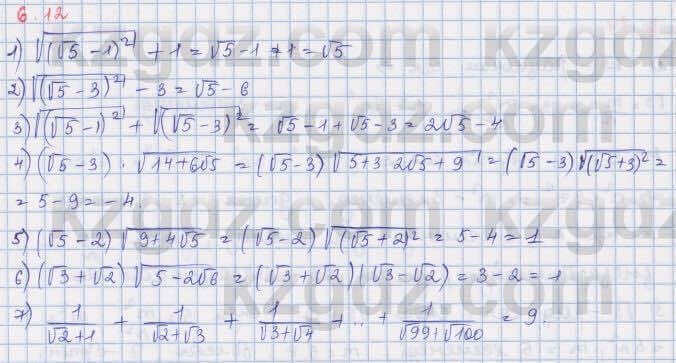 6.12
1) √(√5 - 1)² + 1 = √5 - 1 + 1 = √5
2) √(√5 - 3)² - 3 = √5 - 6
3) √(√5 - 1)² + √(√5 - 3)² = √5 - 1 + √5 - 3 = 2√5 - 4
4) (√5 - 3) · √14 + 6√5 = (√5 - 3) √5 + 3 · 2√5 + 9 = (√5 - 3) √(√5 + 3)² =
= 5 - 9 = - 4.
5) (√5 - 2) √9 + 4√5 = (√5 - 2) √(√5 + 2)² = 5 - 4 = 1
6) (√3 + √2) √5 - 2√6 = (√3 + √2) (√3 - √2) = 3 - 2 = 1
7) 1/(√2 + 1) + 1/(√2 + √3) + 1/(√3 + √4) + .. + 1/(√99 + √100) = 9.
kzgdz.com
kzgdz.com
kzgdz.com
kzgdz.com